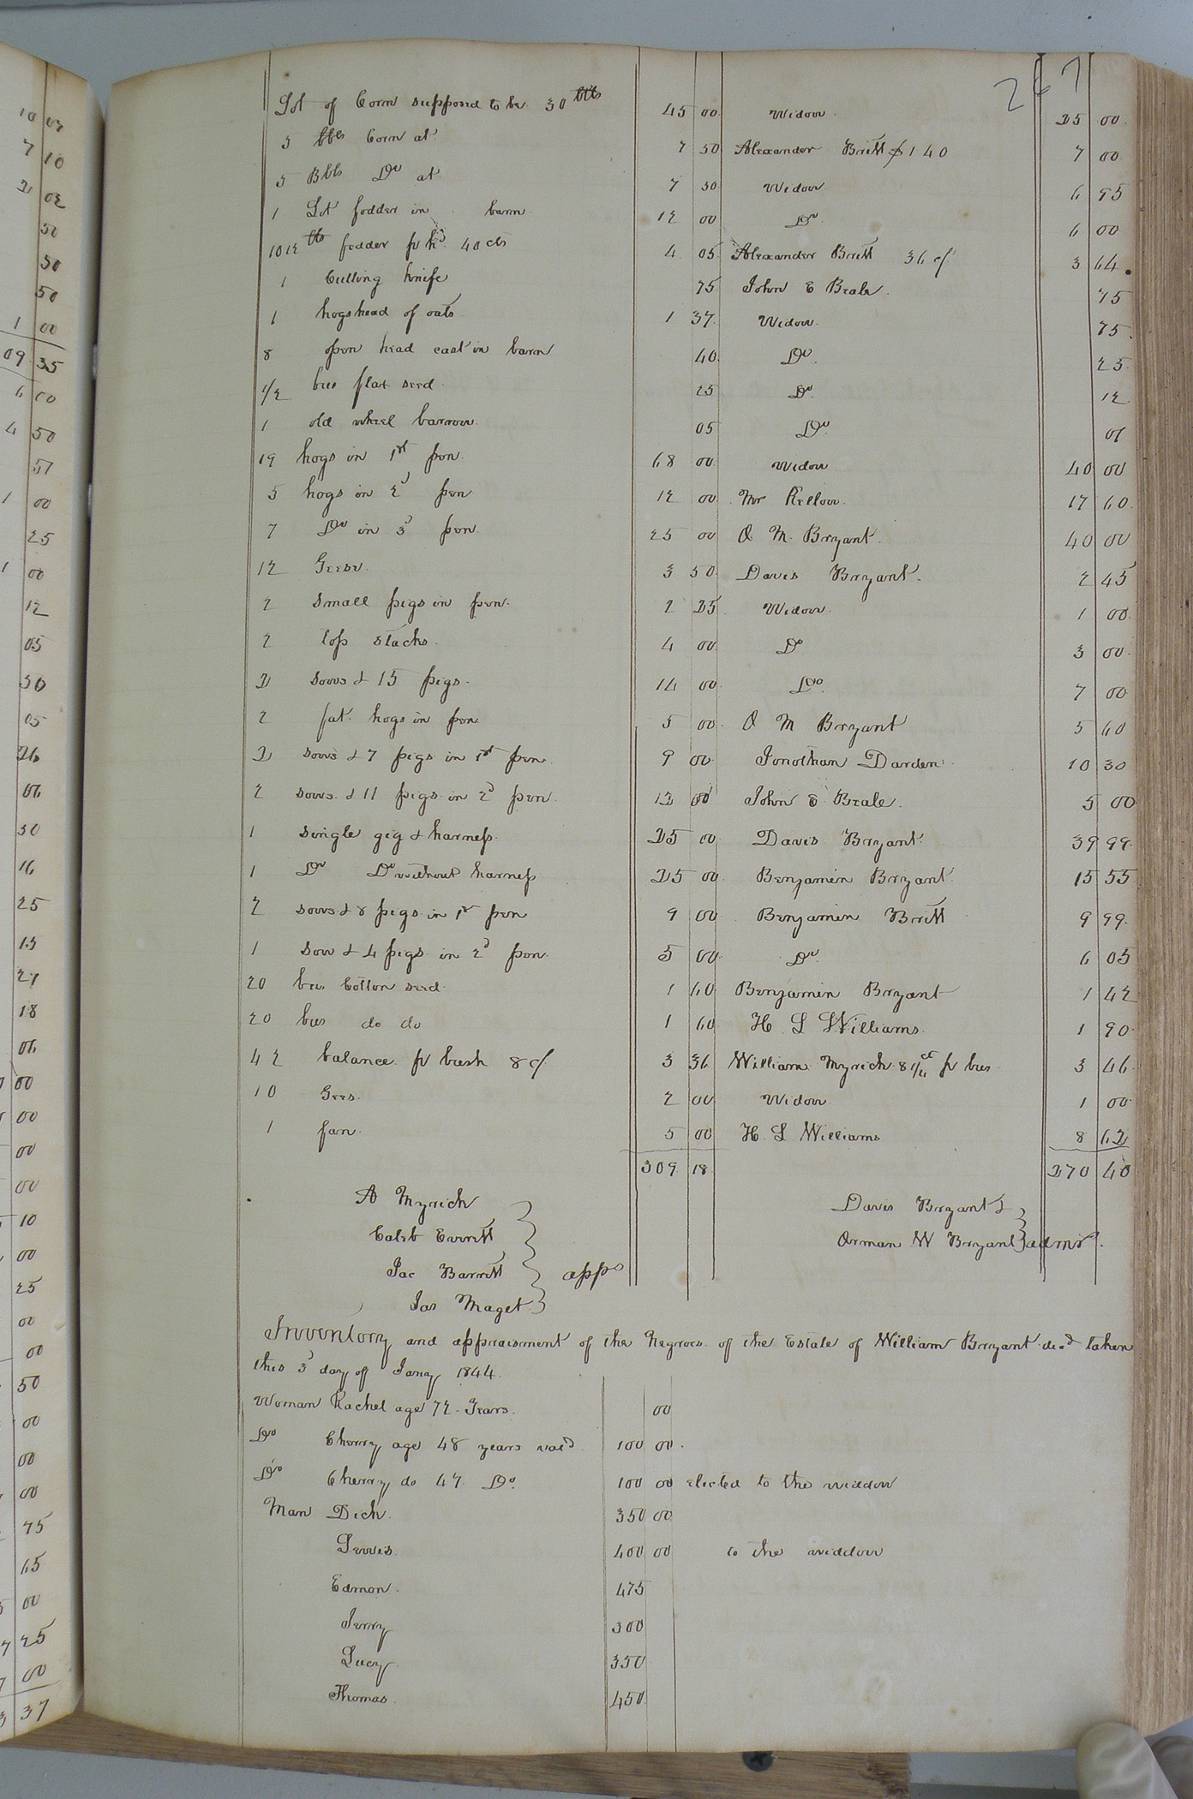 267
Lot of Corn supposed to be 30 bbls 45 00 Widow 35 00
5 bbls Corn at 7 50 Alexander Britt $1 40 7 00
5 Bbls Do at 7 50 Widow 6 95
1 Lot fodder in barn 12 00 Do 6 00
1012 lbs fodder pr hd 40 cts 4 05 Alexander Britt 36 c/ 3 64
1 Cutting knife 75 John E Beale 75
1 hogshead of oats 1 37 Widow 75
8 head east in barn 40 Do 25
1/2 bus flax seed 25 Do 12
1 old wheel barrow 05 Do 01
19 hogs in 1st pen 68 00 Widow 40 00
5 hogs in 2d pen 12 00 Mr Kellow 17 60
7 Do in 3d pen 25 00 O M Bryant 40 00
12 Geese 3 50 Davis Bryant 2 45
2 small pigs in pen 2 35 Widow 1 00
2 top stacks 4 00 Do 3 00
3 sows & 15 pigs 14 00 Do 7 00
2 fat hogs in pen 5 00 O M Bryant 5 60
3 sows & 7 pigs in 1st pen 9 00 Jonothan Darden 10 30
2 sows & 11 pigs in 2d pen 13 00 John E Beale 5 00
1 single gig & harness 35 00 Davis Bryant 39 99
1 Do Do without harness 35 00 Benjamin Bryant 15 55
2 sows & 8 pigs in 1st pen 9 00 Benjamin Britt 9 99
1 sow & 4 pigs in 2d pen 5 00 Do 6 05
20 bus Cotton seed 1 60 Benjamin Bryant 1 42
20 bus do do 1 60 H L Williams 1 90
42 balance pr bush 8 c/ 3 36 William Myrick 8 1/4 ct pr bus 3 46
10 Gees 2 00 Widow 1 00
1 fan 5 00 H L Williams 8 63
309 18 370 40
A Myrick
Caleb Everett
Jac Barrett apps
Jas Maget
Davis Bryant
Orman W Bryant admrs
Inventory and appraisment of the Negroes of the Estate of William Bryant decd taken
this 3d day of Jany 1844
Woman Rachel age 72 Years 00
Do Cherry age 48 years 100 00
Do Cherry do 47 Do 100 00 elected to the widdow
Man Dick 350 00
Lewis 400 00 to the widdow
Edmon 475
Jerry 300
Lucy 350
Thomas 450
10 09
7 10
3 02
50
50
50
1 00
09 35
6 00
4 50
51
1 00
25
1 00
12
05
30
05
36
06
30
16
25
13
27
18
06
00
00
00
00
10
00
25
00
00
50
00
00
00
75
65
00
25
00
37